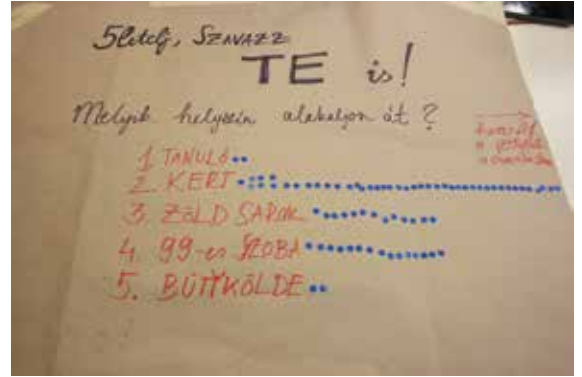 Ötletelj, SZAVAZZ
TE is!
Melyik helyszín alakuljon át?
1. TANULÓ
2. KERT
3. ZÖLD SAROK
4. 99-es SZOBA
5. BÜTYKÖLDE